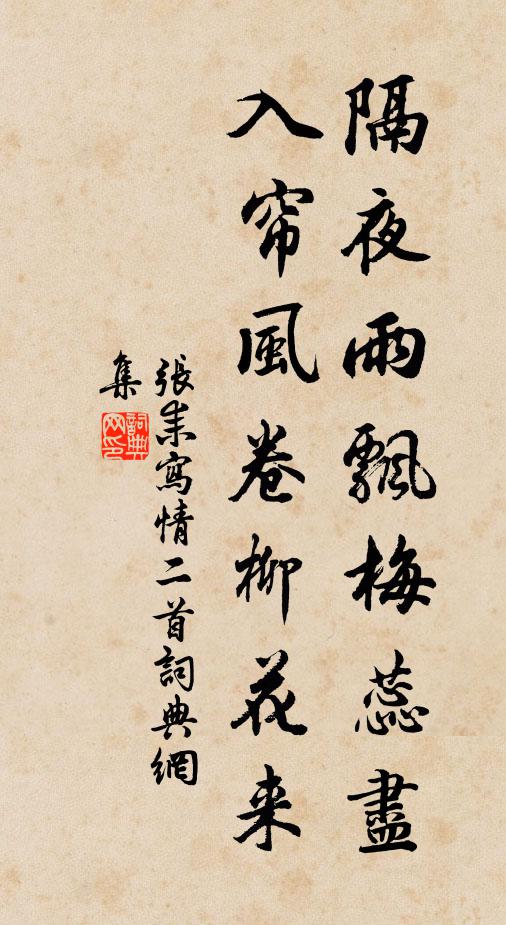 隔夜雨飄梅蕊盡
入帘風卷柳花来
張耒寫情二首詞典網
集
詞典
网印